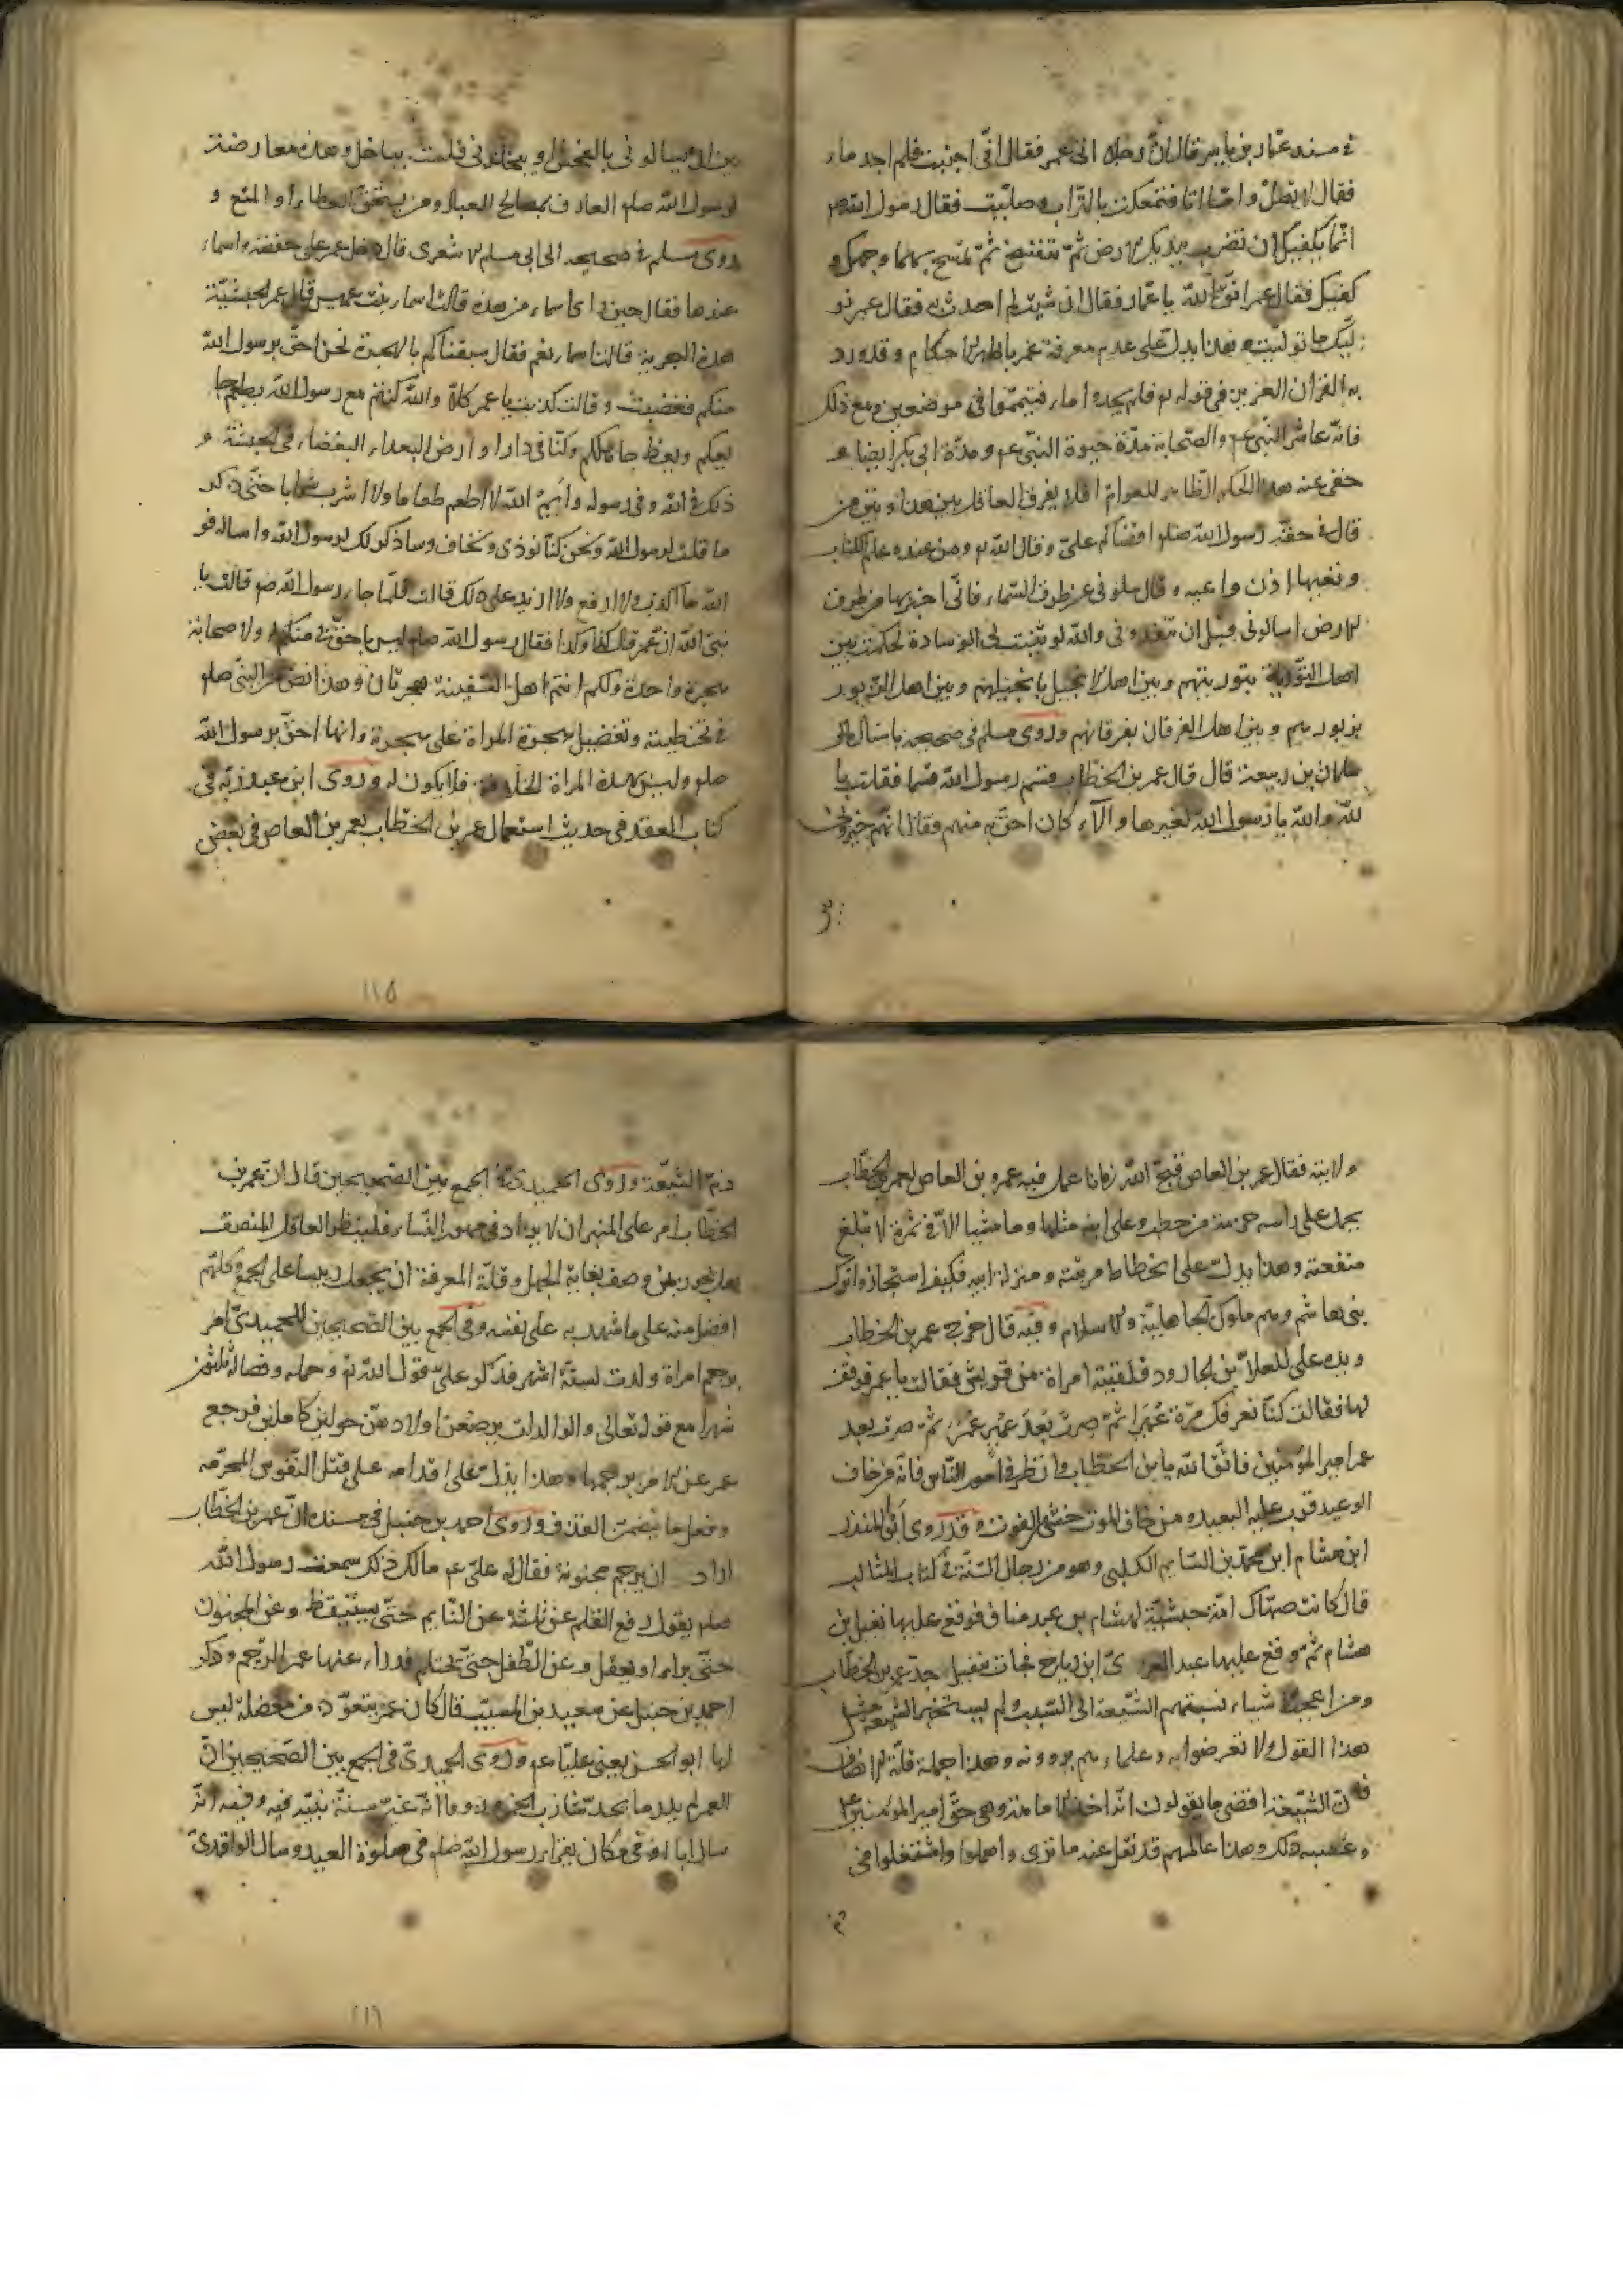 في مسند عمّار بن ياسر قال انّ رجلا اتى عمر فقال انّي اجنبت فلم اجد ماء
فقال لا تصلّ وامّا انا فتمعكت بالتّراب وصلّيت فقال رسول الله ص
انّما يكفيك ان تضرب بيديك الارض ثمّ تنفخ ثمّ تمسح بهما وجهك و
كفيك فقال عمر اتّق الله يا عمّار فقال ان شئت لم احدث به فقال عمر نو
ليك ما توليت وهذا يدلّ على عدم معرفة عمر باظهر الاحكام وقد ورد
به القران العزيز في قوله تع فلم تجدوا ماء فتيمّموا في موضعين ومع ذلك
فانّه عاشر النّبي عم والصّحابة مدّة حيوة النّبي عم ومدّة ابي بكر ايضا و
خفي عنه هذا الحكم الظّاهر للعوام افلا يفرق العاقل بين هذا وبين من
قال في حقّه رسول الله صلعم اقضاكم عليّ وقال الله تع ومن عنده علم الكتاب
وتعيها اذن واعيه وقال سلوني عن طرق السّماء فانّي اخبر بها من طرق
الارض اسالوني قبل ان تفقدوني والله لو ثنيت لي الوسادة لحكمت بين
اهل التّورية بتوريتهم وبين اهل الانجيل بانجيلهم وبين اهل الزبور
بزبورهم وبين اهل الفرقان بفرقانهم وروى مسلم في صحيحه باسناده الى
سلمان بن ربيعة قال قال عمر بن الخطّاب قسم رسول الله قسما فقلت يا
لله والله يا رسول الله لغيرها ولآء كان احقّ به منهم فقال انهم خيروني
بين ان يسالوني بالفحش او يبخلوني فلست بباخل وهذه معارضة
لرسول الله صلعم العارف بمصالح العباد ومن يستحقّ العطاء او المنع و
روى مسلم في صحيحه الى ابي مسلم الاشعري قال دخل عمر على حفصة واسماء
عندها فقال حين راى اسماء من هذه قالت اسماء بنت عميس قال عمر الحبشيّة
هذه البحرية قالت اسماء نعم فقال سبقناكم بالهجرة نحن احقّ برسول الله
منكم فغضبت وقالت كذبت يا عمر كلاّ والله كنتم مع رسول الله يطعم جا
يعكم ويعظ جاهلكم وكنّا في دار او ارض البعداء البغضاء في الحبشة و
ذلك في الله وفي رسوله وايم الله لا اطعم طعاما ولا اشرب شرابا حتّى اذكر
ما قلت لرسول الله ونحن كنّا نوذى ونخاف وساذكر ذلك لرسول الله واساله فو
الله ما اكذب ولا ارفع ولا ازيد على ذلك قالت فلمّا جاء رسول الله صم قالت يا
نبيّ الله ان عمر قال كذا وكذا فقال رسول الله صلعم ليس باحقّ بي منكم وله ولاصحابه
هجرة واحدة ولكم انتم اهل السّفينة هجرتان وهذا نصّ من النبّي صلعم
في تخطيته وتفضيل هجرة المراة على هجرته وانها احقّ برسول الله
صلعم وليس لهذه المراة الخلافة فلا يكون له وروى ابن عبد ربّه في
كتاب العقد في حديث استعمال عمر بن الخطّاب لعمر بن العاص في بعض
١١٥
ولايته فقال عمر بن العاص قبّح الله زمانا عمل فيه عمرو بن العاص لعمر بن الخطّاب
يحمل على راسه حزمة من حطب وعلى ابنه مثلها وما منهما الاّ في نمرة لا تبلغ
منفعته وهذا يدلّ على انحطاط مرتبته ومنزلة ابيه فكيف استجازوا ترك
بني هاشم وهم ملوك الجاهليّة والاسلام وفيه قال خرج عمر بن الخطّاب
ويده على المعلاّ بن الجارود فلقيته امراة من قريش فقالت يا عمر فوقف
لها فقالت كنّا نعرفك مرّة عُمَيرا ثمّ صرت بعد عمير عمر ثمّ صرت بعد
عمر امير المؤمنين فاتّق الله يابن الخطّاب وانظر في امور النّاس فانّه من خاف
الوعيد قرب عليه البعيد ومن خاف الموت خشي الفوت وقد روى ابو المنذر
ابن هشام ابن محمّد بن السّايب الكلبي وهو من رجال السّنّة في كتاب المثالب
قال كانت صهّاك امة حبشيّة لهشام بن عبد مناف فوقع عليها نفيل ابن
هشام ثم وقع عليها عبد العزّى ابن رياح فجات بنفيل جدّ عمر بن الخطّاب
ومن اعجب الاشياء نسبتهم الشّيعة الى السّبّ ولم يستخبر الشّيعة مثل
هذا القول ولا تعرضوا به وعلماءهم يروونه وهذا جملة قلّة الانصاف
فان الشّيعة اقضى ما يقولون انّه اخذ الامامة وهي حقّ امير المؤمنين ع
وغصبه ذلك وهذا عالمهم قد نقل عنه ما ترى واهملوا واشتغلوا في
ذمّ الشّيعة وروى الحميدي في الجمع بين الصّحيحين قال انّ عمر بن
الخطّاب امر على المنبر ان لا يزاد في مهور النّساء فلينظر العاقل المنصف
هل يجوز لمن وصف بغاية الجهل وقلّة المعرفة ان يجعل رييسا على الجميع وكلّهم
افضل منه على ما شهد به على نفسه وفي الجمع بين الصّحيحين للحميديّ امر
برجم امراة ولدت لستّة اشهر فذكر عليّ قول الله تع وحمله وفصاله ثلثون
شهرا مع قوله تعالى والوالدات يرضعن اولادهنّ حولين كاملين فرجع
عمر عن الامر برجمها وهذا يدلّ على اقدامه على قتل النّفوس المحرّمة
وفعل ما يتضمّن القذف وروى احمد بن حنبل في مسنده انّ عمر بن الخطّاب
اراد ان يرجم مجنونة فقال له عليّ عم مالك ذلك سمعت رسول الله
صلعم يقول رفع القلم عن ثلثة عن النّايم حتّى يستيقظ وعن المجنون
حتّى يبراء او يعقل وعن الطّفل حتّى يحتلم فدراء عنها عمر الرّجم وذكر
احمد بن حنبل عن سعيد بن المسيّب قال كان عمر يتعوّذ من معضلة ليس
لها ابو الحسن يعني عليّا عم وروى الحميديّ في الجمع بين الصّحيحين انّ
العمر لم يدر ما بحدّ شارب الخمر
سال ابا اوفى ما كان يقراء رسول الله صلعم في صلوة العيد وسال الواقديّ
١١٦